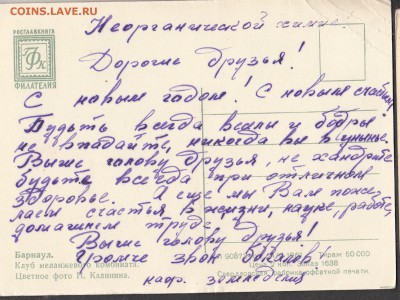 COINS.LAVE.RU
РОСГЛАВКНИГА
ФИЛАТЕЛИЯ
Неорганической химии
Дорогие друзья!
С новым годом! С новым счастьем
Будьте всегда весели и бодры
не впадайте, никогда вы в унынье.
Выше голову друзья, не хандрите
будьте всегда при отличном
здоровье. И еще мы Вам поже-
лаем счастья в жизни, науке, работе,
домашнем труде.
Выше голову друзья!
Громче
каф. земледелия
Барнаул.
Клуб меланжевого комбината.
Цветное фото Н. Калинина.
Тираж 50 000
Заказ 1638
Свердловская фабрика офсетной печати.